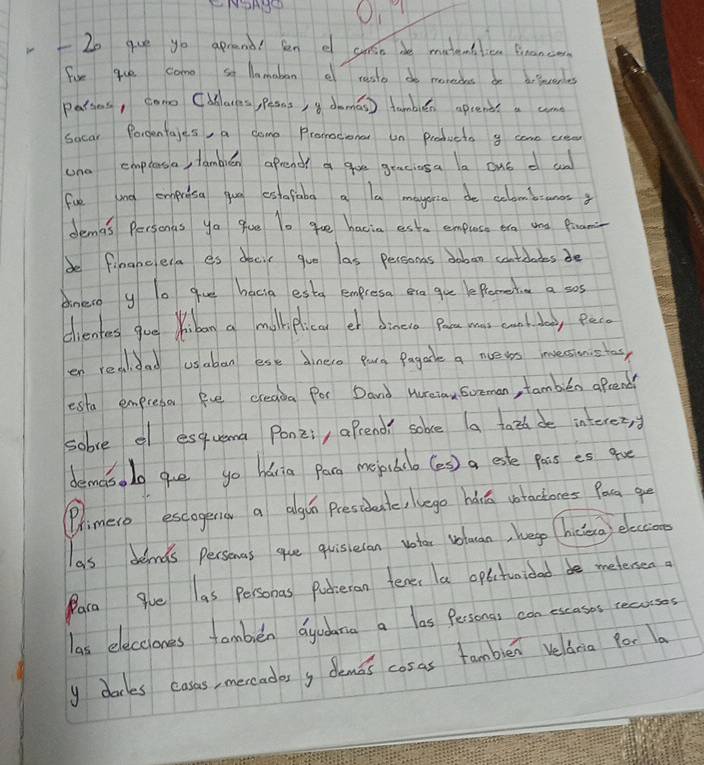 ENSAYO
- Lo que yo aprendí en el curso de matemática financiera
fue que como se llamaban el resto de monedas de diferentes
paises, como (Dólares, Pesos, y demás) también aprendí a como
sacar Porcentajes, a como Promocionar un Producto y como crear
una empresa, también aprendí a que graciosa la DMG el cual
fue una empresa que estafaba a la mayoria de colombianos y
demás Personas ya que lo que hacia esta empresa era una
de financiera es decir que las personas daban cantidades de
dinero y lo que hacia esta empresa era que le Prometia a sos
clientes que hiban a multiplicar el dinero Para mas cantidad, Pero
en realidad usaban ese dinero para Pagarle a nuevos inversionistas,
esta empresa fue creada Por David Murcia, Guzman, también aprendí
sobre el esquema Ponzi, aprendí sobre la taza de interez, y
demás. lo que yo hária Para mejorarlo (es) a este Pais es que
Primero escogeria a algún Presidente, luego hária votaciones Para que
las demás Personas que quisieran votar votaran, luego hiciera elecciones
Para que las Personas Pudieran tener la oportunidad de metersen a
las elecciones también áyudaria a las Personas con escasos recursos
y darles casas, mercados y demás cosas también Velária Por la